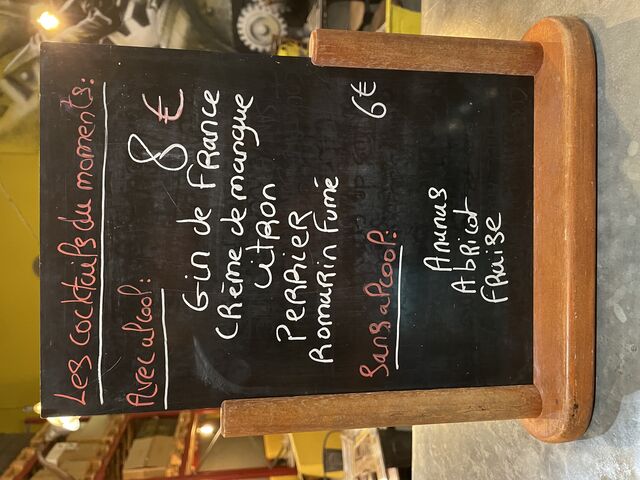 Les cocktails du moments:
Avec alcool: 8 €
Gin de France
Crème de mangue
Citron
Perrier
Romarin Fumé
Sans alcool: 6€
Ananas
Abricot
Fraise